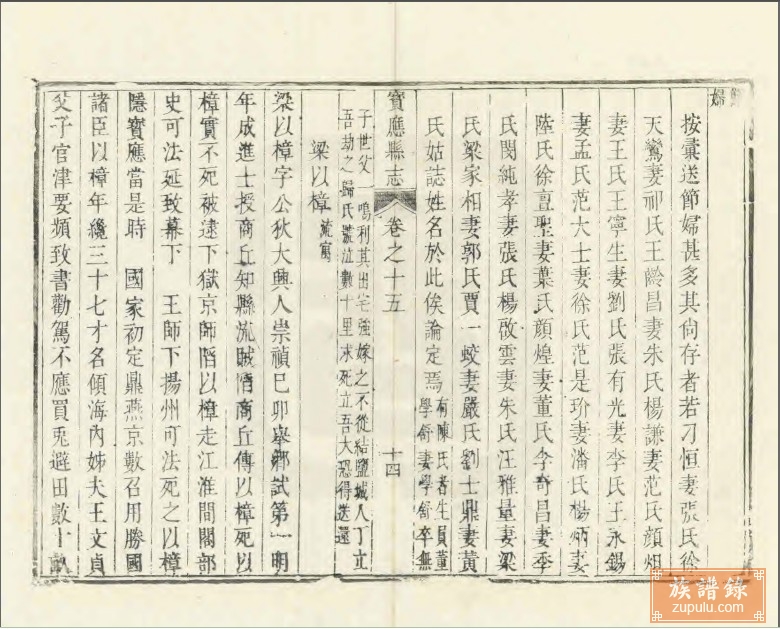 節婦
按彙送節婦甚多其尚存者若刁恒妻張氏徐
天鸞妻祁氏王齡昌妻朱氏楊謙妻范氏顔炟
妻王氏王寧生妻劉氏張有光妻李氏王永錫
妻孟氏范大士妻徐氏范是玠妻潘氏楊炳妻
陸氏徐亶聖妻葉氏顔煌妻董氏李奇昌妻季
氏閔純孝妻張氏楊啟雲妻朱氏汪雅量妻梁
氏梁家相妻郭氏賈一蛟妻嚴氏劉士鼎妻黃
氏姑誌姓名於此俟論定焉
有陳氏者生員董
學舒妻學舒卒無
寶應縣志
卷之十五
十四
子世父一鳴利其田宅強嫁之不從結鹽城人丁立
吾劫之歸氏號泣數十里求死立吾大恐得送還
梁以樟 流寓
梁以樟字公狄大興人崇禎巳卯舉鄉試第一明
年成進士授商丘知縣流賊陷商丘傳以樟死以
樟實不死被逮下獄京師陷以樟走江淮間閣部
史可法延致幕下 王師下揚州可法死之以樟
隱寶應當是時 國家初定鼎燕京數召用勝國
諸臣以樟年纔三十七才名傾海內姊夫王文貞
父子官津要頻致書勸駕不應買兎避田數十畝
族譜錄
zupulu.com